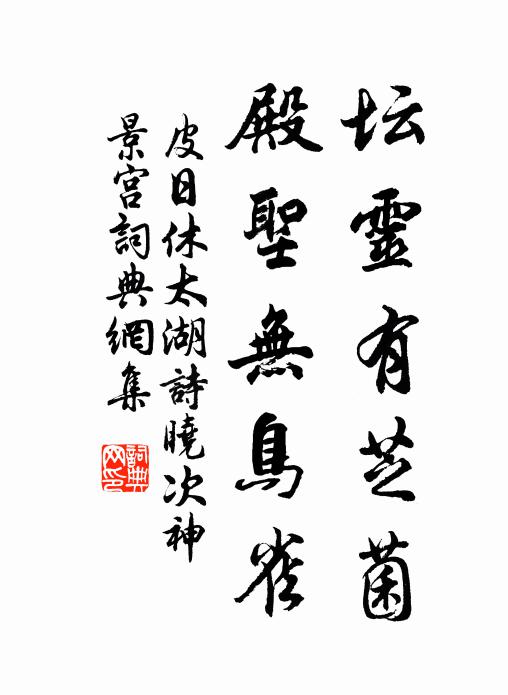 坛靈有芝菌
殿聖無鳥雀
皮日休太湖詩曉次神
景宮詞典網集
詞典
网印